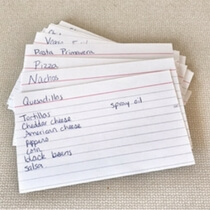 Pasta Primavera
Pizza
Nachos
Quesadillas
Spray oil
Tortillas
Cheddar cheese
American cheese
Peppers
Corn
black beans
Salsa